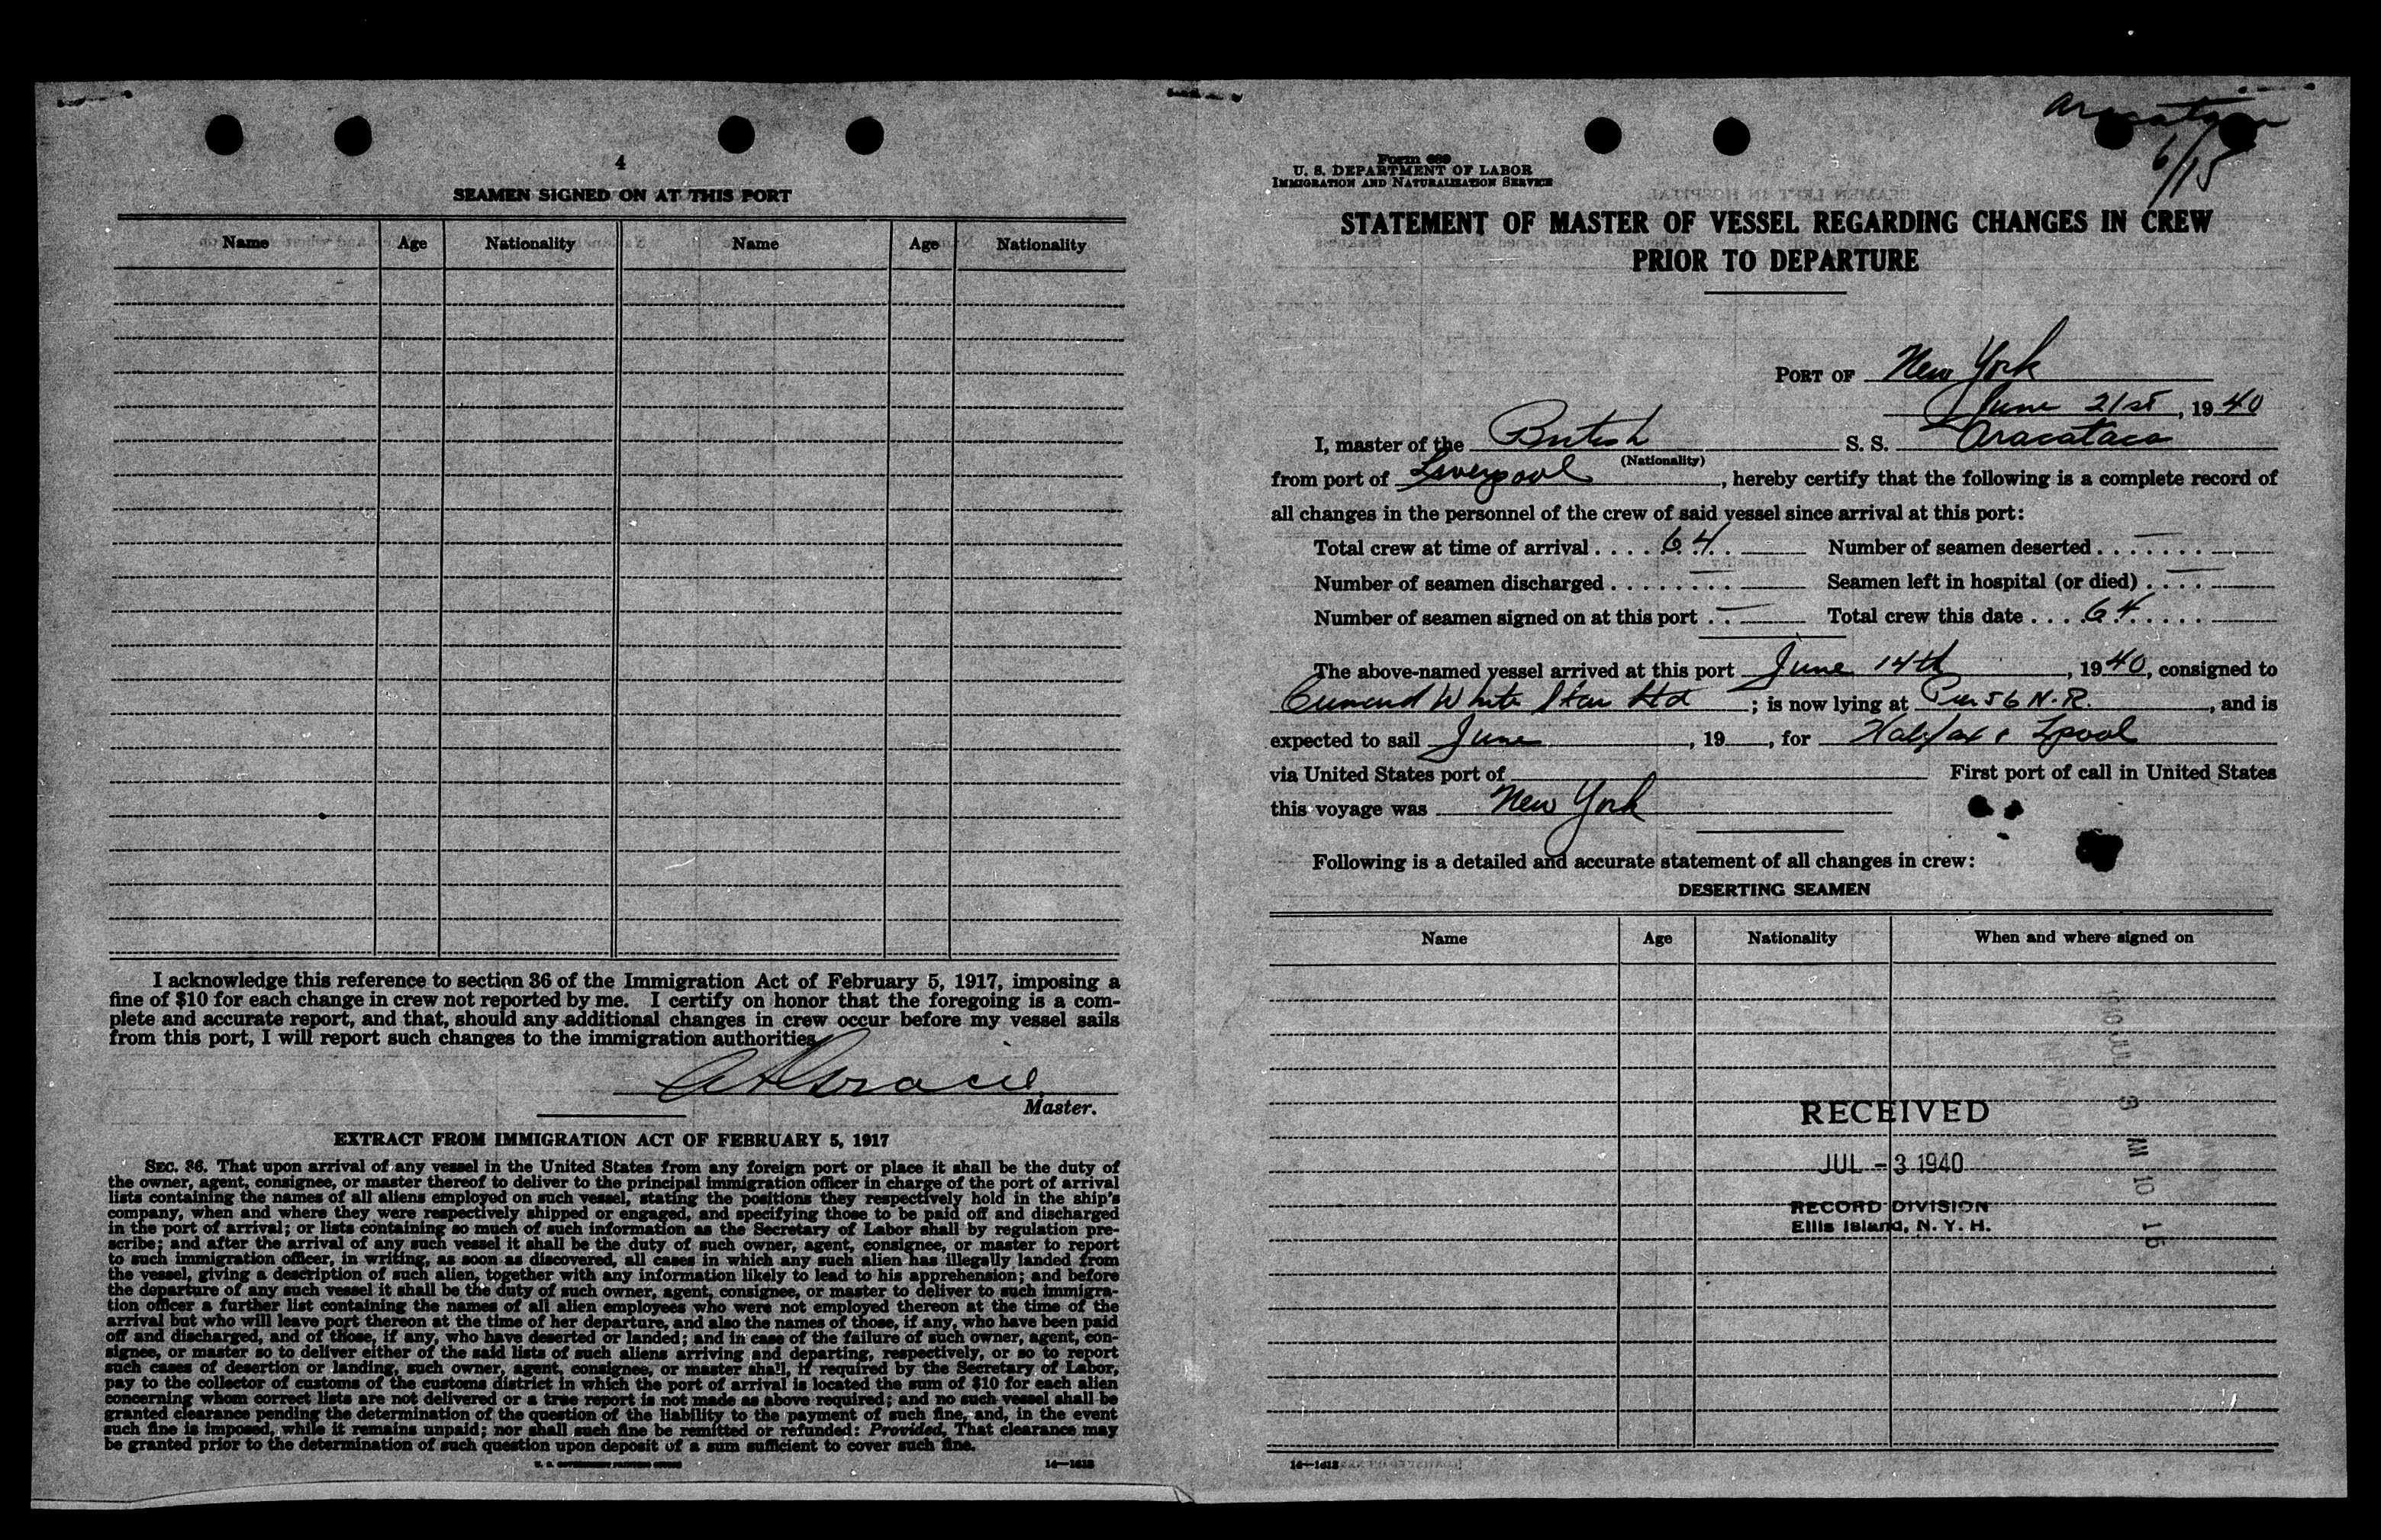 4
SEAMEN SIGNED ON AT THIS PORT
Name Age Nationality Name Age Nationality
I acknowledge this reference to section 36 of the Immigration Act of February 5, 1917, imposing a
fine of $10 for each change in crew not reported by me. I certify on honor that the foregoing is a com-
plete and accurate report, and that, should any additional changes in crew occur before my vessel sails
from this port, I will report such changes to the immigration authorities.
Master.
EXTRACT FROM IMMIGRATION ACT OF FEBRUARY 5, 1917
SEC. 36. That upon arrival of any vessel in the United States from any foreign port or place it shall be the duty of
the owner, agent, consignee, or master thereof to deliver to the principal immigration officer in charge of the port of arrival
lists containing the names of all aliens employed on such vessel, stating the positions they respectively hold in the ship's
company, when and where they were respectively shipped or engaged, and specifying those to be paid off and discharged
in the port of arrival; or lists containing so much of such information as the Secretary of Labor shall by regulation pre-
scribe; and after the arrival of any such vessel it shall be the duty of such owner, agent, consignee, or master to report
to such immigration officer, in writing, as soon as discovered, all cases in which any such alien has illegally landed from
the vessel, giving a description of such alien, together with any information likely to lead to his apprehension; and before
the departure of any such vessel it shall be the duty of such owner, agent, consignee, or master to deliver to such immigra-
tion officer a further list containing the names of all alien employees who were not employed thereon at the time of the
arrival but who will leave port thereon at the time of her departure, and also the names of those, if any, who have been paid
off and discharged, and of those, if any, who have deserted or landed; and in case of the failure of such owner, agent, con-
signee, or master so to deliver either of the said lists of such aliens arriving and departing, respectively, or so to report
such cases of desertion or landing, such owner, agent, consignee, or master shall, if required by the Secretary of Labor,
pay to the collector of customs of the customs district in which the port of arrival is located the sum of $10 for each alien
concerning whom correct lists are not delivered or a true report is not made as above required; and no such vessel shall be
granted clearance pending the determination of the question of the liability to the payment of such fine, and, in the event
such fine is imposed, while it remains unpaid; nor shall such fine be remitted or refunded: Provided, That clearance may
be granted prior to the determination of such question upon deposit of a sum sufficient to cover such fine.
U. S. GOVERNMENT PRINTING OFFICE 14—1613
Aracataca
6/15
Form 689
U. S. DEPARTMENT OF LABOR
IMMIGRATION AND NATURALIZATION SERVICE
STATEMENT OF MASTER OF VESSEL REGARDING CHANGES IN CREW
PRIOR TO DEPARTURE
PORT OF New York
June 21st, 1940
I, master of the British S. S. Aracataca
(Nationality)
from port of Liverpool, hereby certify that the following is a complete record of
all changes in the personnel of the crew of said vessel since arrival at this port:
Total crew at time of arrival . . . . 64 Number of seamen deserted . . . . . . . —
Number of seamen discharged . . . . . . . . — Seamen left in hospital (or died) . . . . —
Number of seamen signed on at this port . . — Total crew this date . . . . 64 . . . . .
The above-named vessel arrived at this port June 14th, 1940, consigned to
Cunard White Star Ltd; is now lying at Pier 56 N.R., and is
expected to sail June, 19 , for Halifax & Lpool
via United States port of First port of call in United States
this voyage was New York
Following is a detailed and accurate statement of all changes in crew:
DESERTING SEAMEN
Name Age Nationality When and where signed on
RECEIVED
JUL - 3 1940
RECORD DIVISION
Ellis Island, N. Y. H.
1940 JUL 3 AM 10 16
14—1613